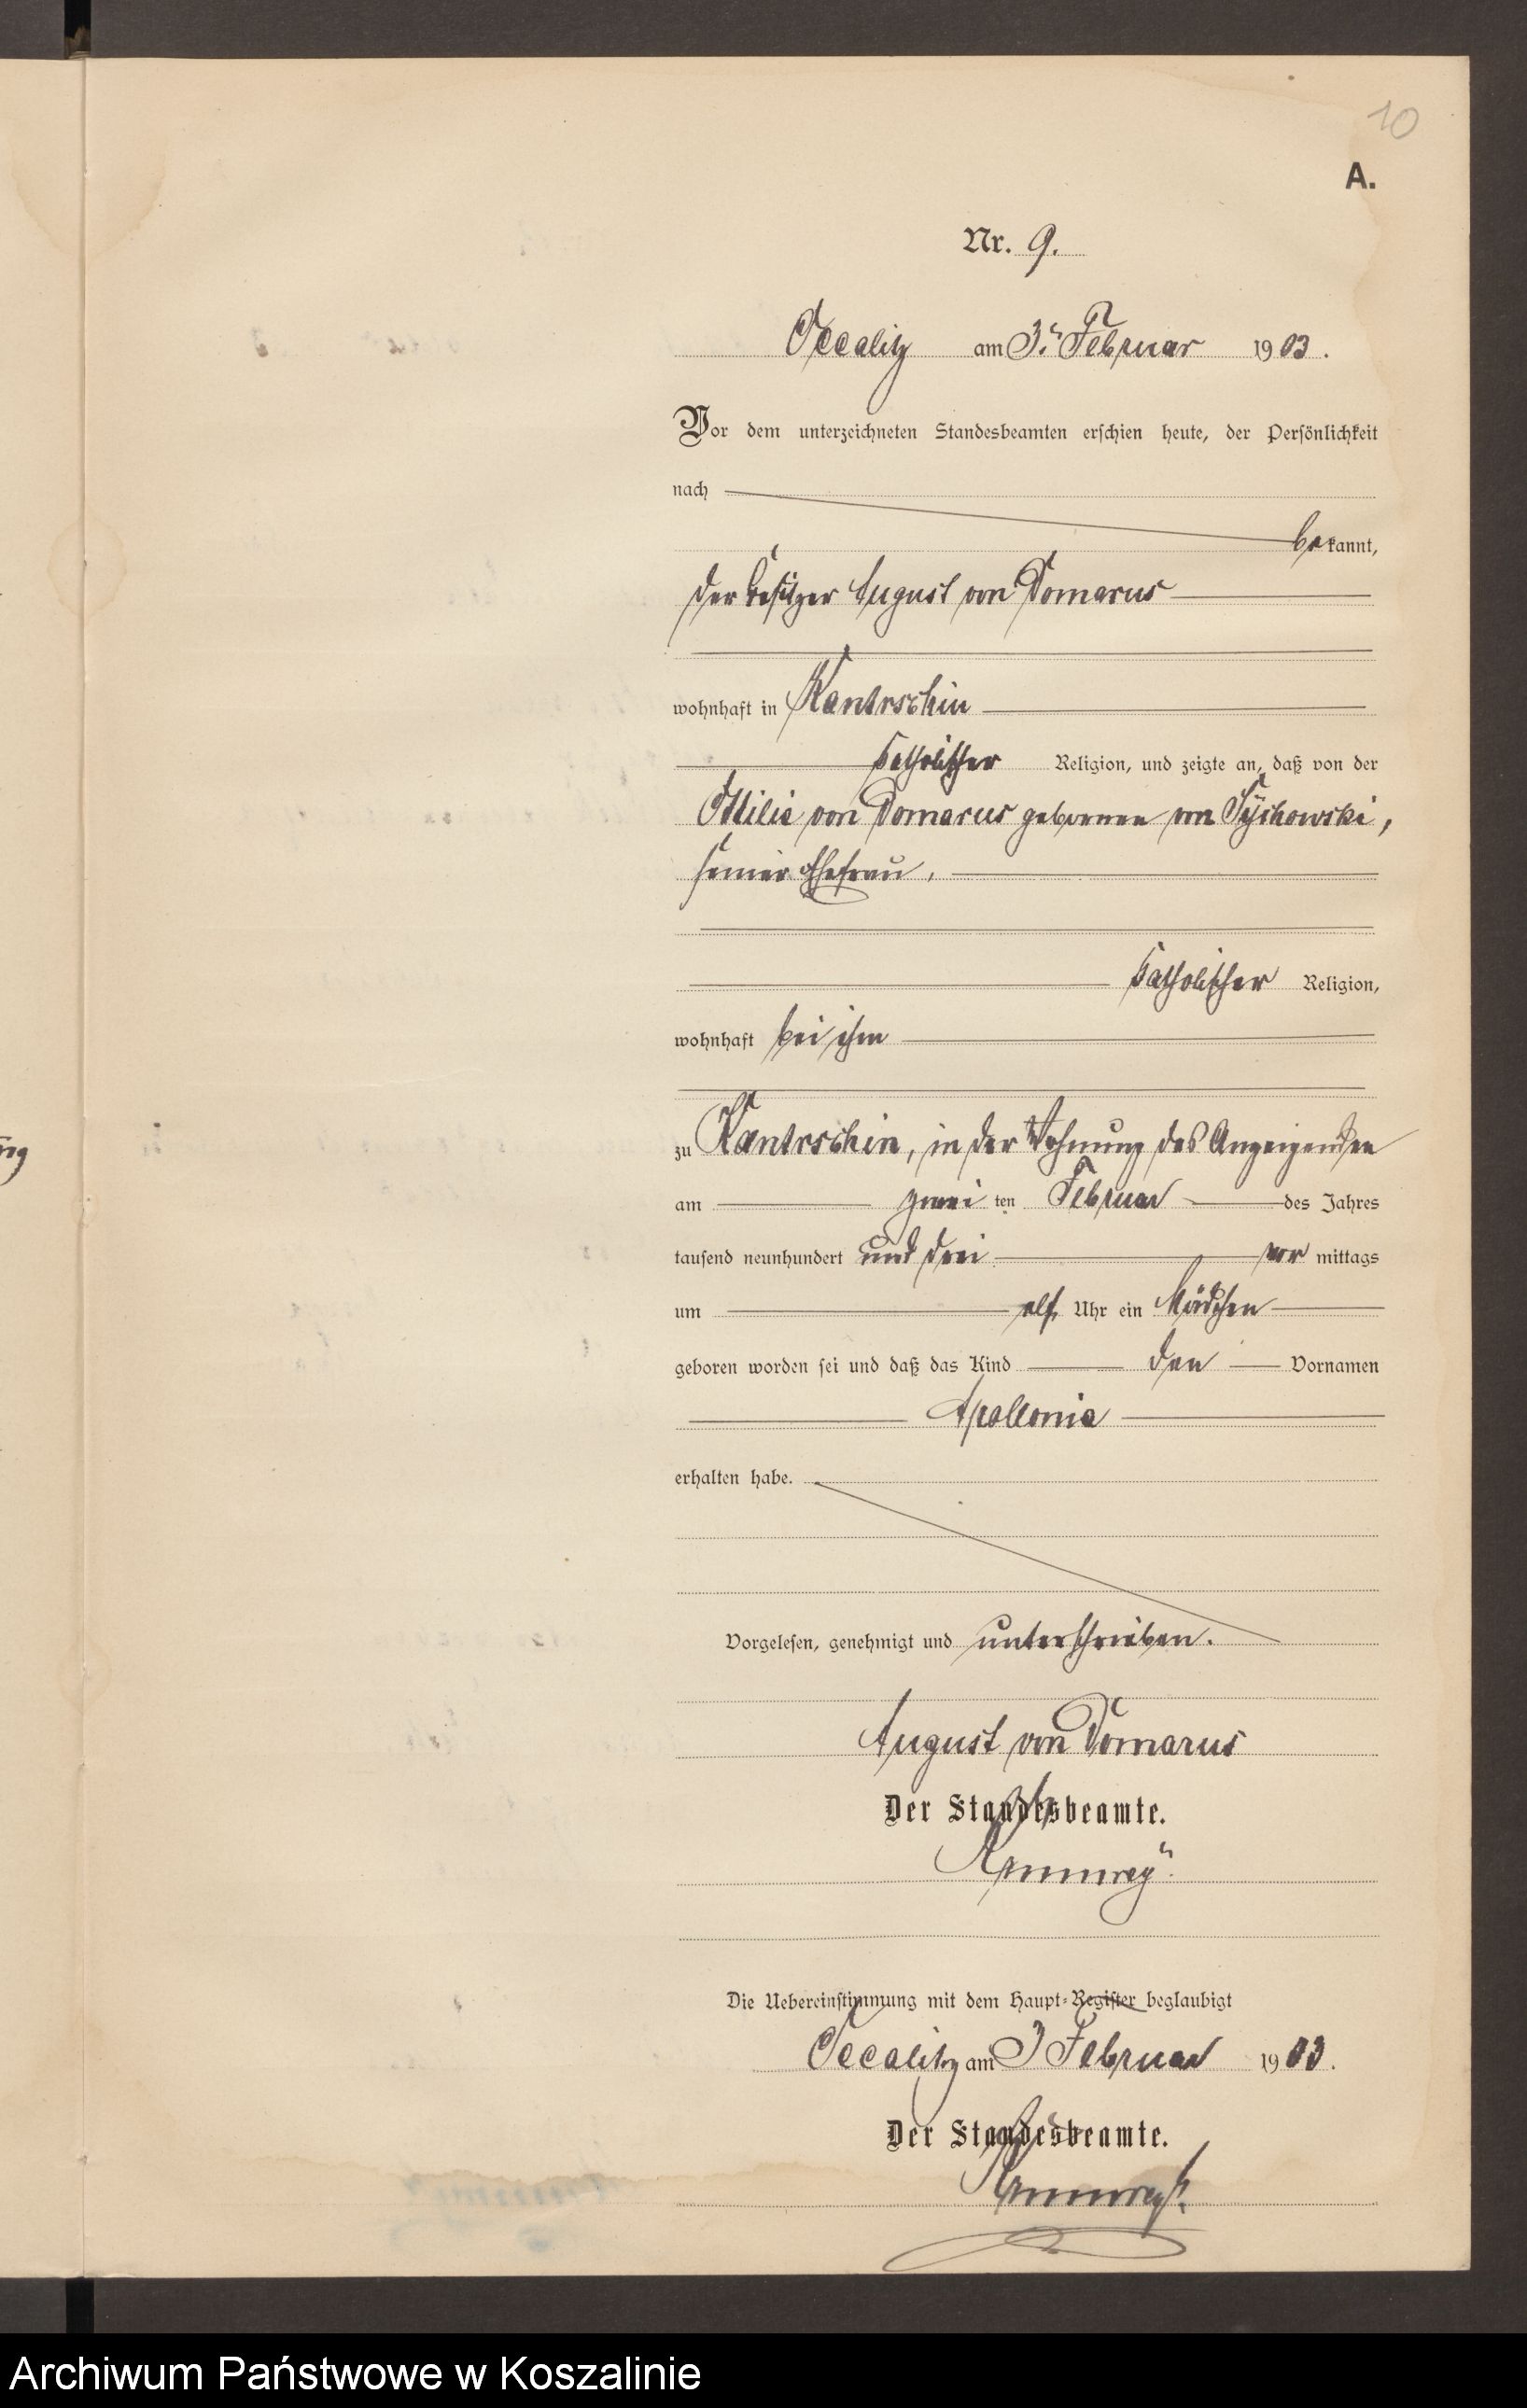 10
A.
Nr. 9.
Occalitz am 3. Februar 1903.
Vor dem unterzeichneten Standesbeamten erschien heute, der Persönlichkeit
nach
bekannt,
der Besitzer August von Domarus
wohnhaft in Kantrschin
katholischer Religion, und zeigte an, daß von der
Ottilie von Domarus geborenen von Tÿchowski,
seiner Ehefrau,
katholischer Religion,
wohnhaft bei ihm
zu Kantrschin, in der Wohnung des Anzeigenden
am zwei ten Februar des Jahres
tausend neunhundert und drei vor mittags
um elf Uhr ein Mädchen
geboren worden sei und daß das Kind den Vornamen
Apollonia
erhalten habe.
Vorgelesen, genehmigt und unterschrieben.
August von Domarus
Der Standesbeamte.
Die Uebereinstimmung mit dem Haupt-Register beglaubigt
Occalitz am 3 Februar 1903.
Der Standesbeamte.
Archiwum Państwowe w Koszalinie